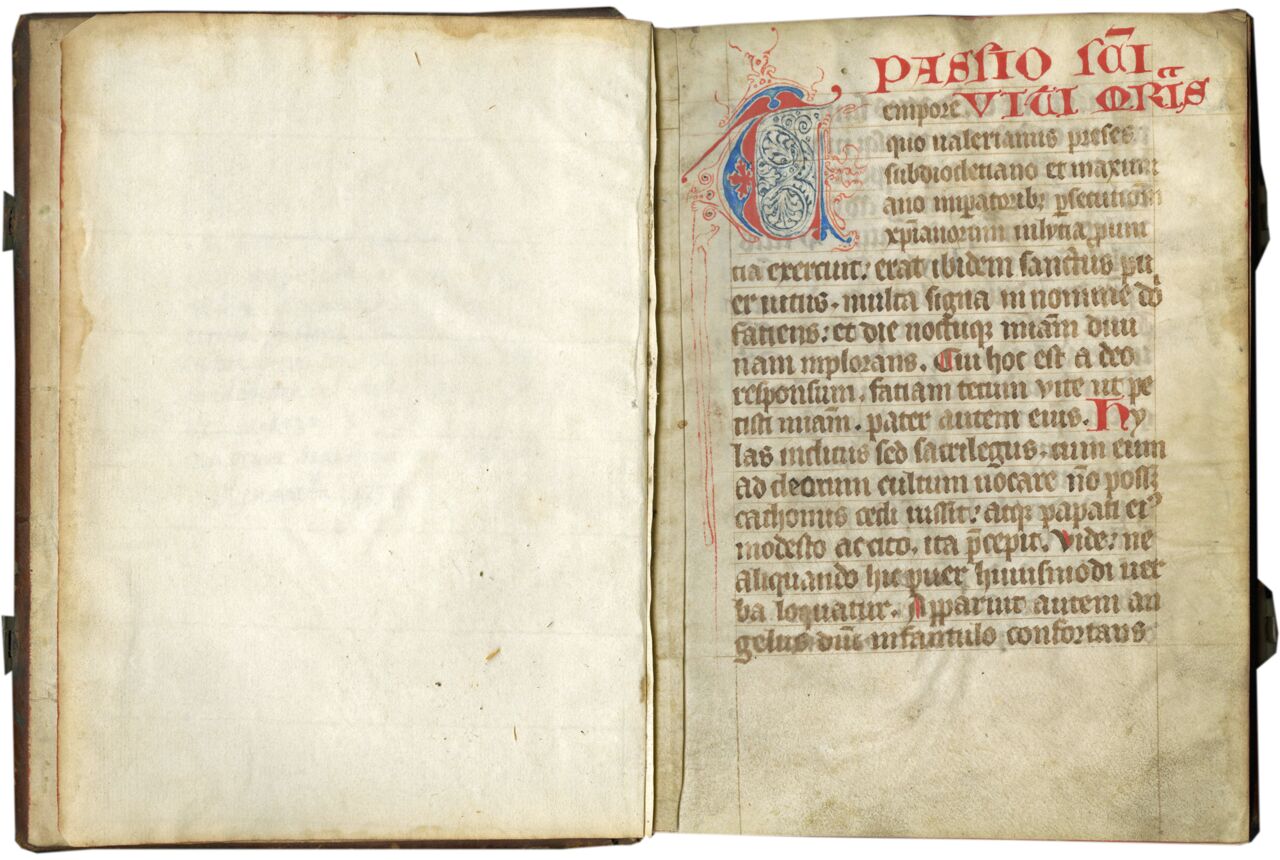 PASSIO SC̄I
VITI MR̄IS
Tempore
quo ualerianus preses
sub diocletiano et maximi
ano imꝑatoribꝫ ꝑsecutionem
xp̄ianorum in lycia ꝓuin
tia exercuit: erat ibidem sanctus pu
er uitus. multa signa in nomine dō
fatiens: et die noctuqꝫ mīam diui
nam inplorans. Cui hoc est a deo
responsum. fatiam tecum vite ut pe
tisti mīam. pater autem eius. Hy
las inclitus sed sacrilegus. cum eum
ad deorum cultum uocare nō possꝫ
cathomis cedi iussit: atqꝫ papati eiꝰ
modesto accito. ita p̄cepit. Vide: ne
aliquando hic puer huiusmodi uer
ba loquatur. Apparuit autem an
gelus dn̄i infantulo confortans